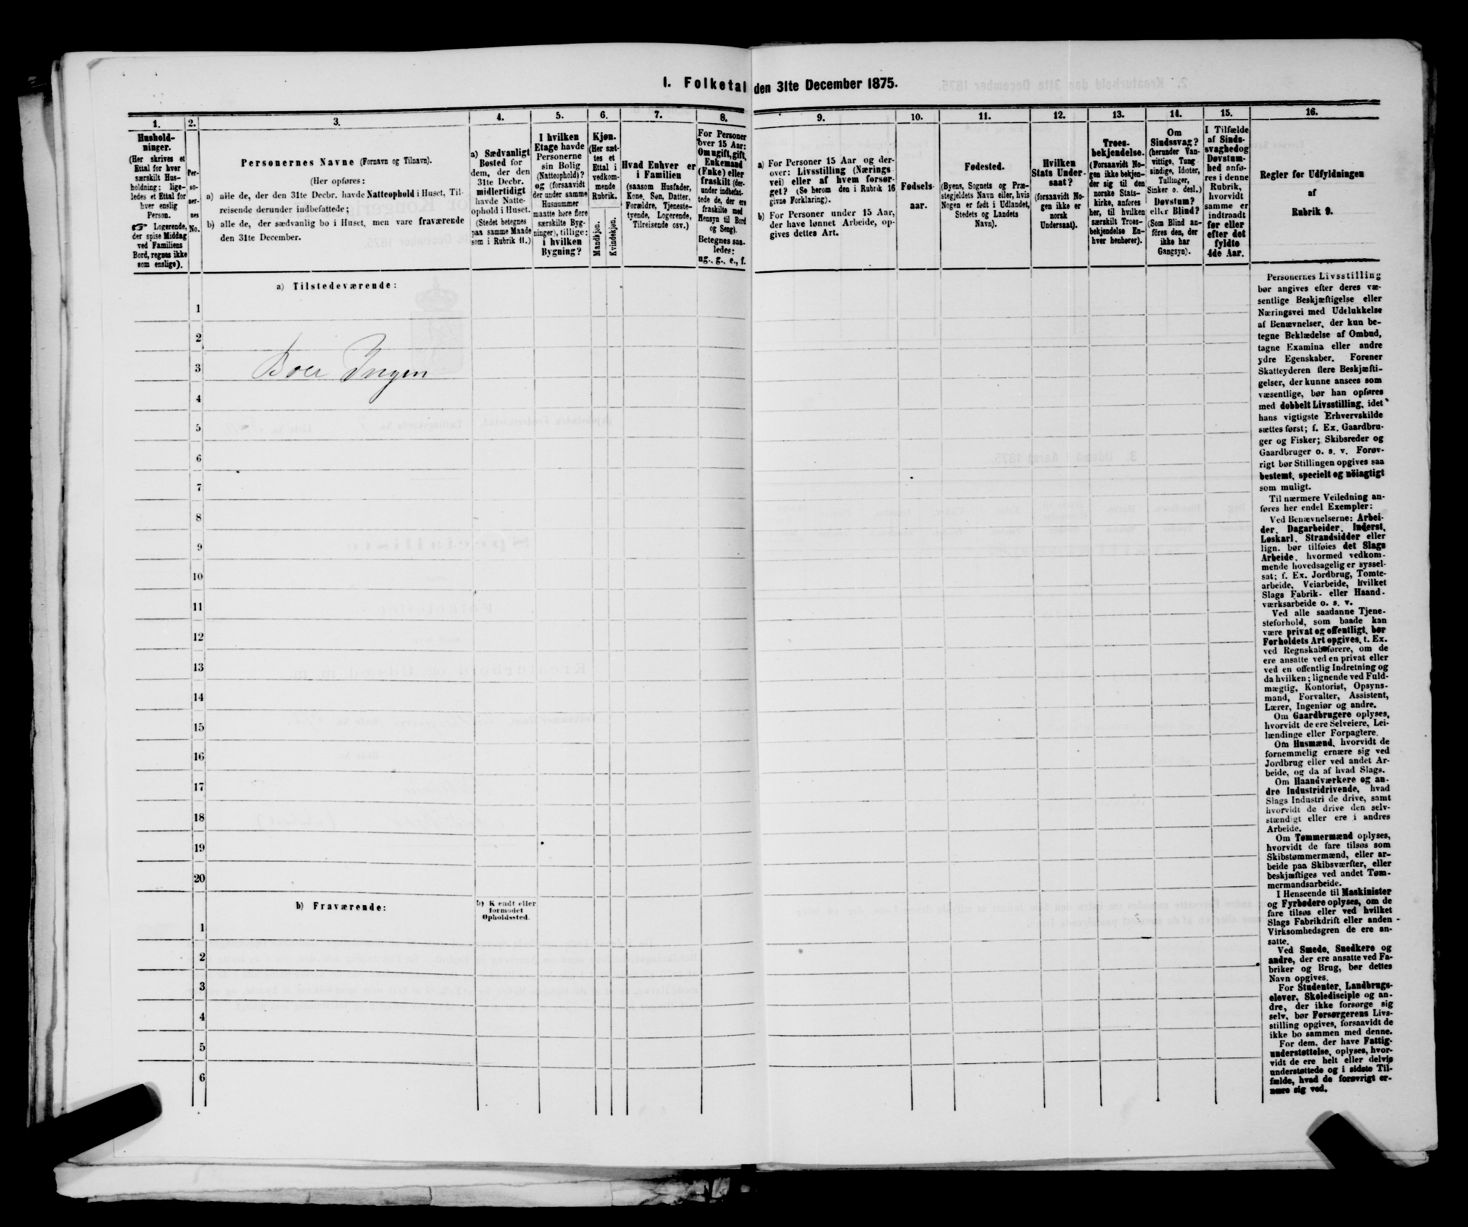 I. Folketal den 31te December 1875.
1.
Hushold-
ninger.
(Her skrives et
Ettal for hver
særskilt Hus-
holdning; lige-
ledes et Ettal for
hver enslig
Person.
☞ Logerende,
der spise Middag
ved Familiens
Bord, regnes ikke
som enslige).
2.
Per-
so-
ner-
nes
No.
3.
Personernes Navne (Fornavn og Tilnavn).
(Her opføres:
a) alle de, der den 31te Decbr. havde Natteophold i Huset, Til-
reisende derunder indbefattede;
b) alle de, der sædvanlig bo i Huset, men vare fraværende
den 31te December.
4.
a) Sædvanligt
Bosted for
dem, der den
31te Decbr.
midlertidigt
havde Natte-
ophold i Huset.
(Stedet betegnes
paa samme Maade
som i Rubrik 11.)
5.
I hvilken
Etage havde
Personerne
sin Bolig
(Natteophold)?
og (forsaavidt
der under samme
Husnummer
maatte høre flere
særskilte Byg-
ninger), tillige:
i hvilken
Bygning?
6.
Kjøn.
(Her sæt-
tes et
Ettal i
vedkom-
mende
Rubrik.
Mandkjøn.
Kvindekjøn.
7.
Hvad Enhver er
i Familien
(saasom Husfader,
Kone, Søn, Datter,
Forældre, Tjeneste-
tyende, Logerende,
Tilreisende osv.)
8.
For Personer
over 15 Aar:
Om ugift, gift,
Enkemand
(Enke) eller
fraskilt (der-
under indbefat-
tede de, der ere
fraskilte med
Hensyn til Bord
og Seng).
Betegnes saa-
ledes:
ug., g., e., f.
9.
a) For Personer 15 Aar og der-
over: Livsstilling (Nærings-
vei) eller af hvem forsør-
get? (Se herom den i Rubrik 16
givne Forklaring).
b) For Personer under 15 Aar,
der have lønnet Arbeide, op-
gives dettes Art.
10.
Fødsels-
aar.
11.
Fødested.
(Byens, Sognets og Præ-
stegjeldets Navn eller, hvis
Nogen er født i Udlandet,
Stedets og Landets
Navn).
12.
Hvilken
Stats Under-
saat?
(forsaavidt No-
gen ikke er
norsk
Undersaat).
13.
Troes-
bekjendelse.
(Forsaavidt No-
gen ikke bekjen-
der sig til den
norske Stats-
kirke, anføres
her, til hvilken
særskilt Troes-
bekjendelse En-
hver henhører).
14.
Om
Sindssvag?
(herunder Van-
vittige, Tung-
sindige, Idioter,
Tullinger,
Sinker o. desl.)
Døvstum?
eller Blind?
(Som Blind an-
føres den, der
ikke har
Gangsyn).
15.
I Tilfælde
af Sinds-
svaghed og
Døvstum-
hed anfø-
res i denne
Rubrik,
hvorvidt
samme er
indtraadt
før eller
efter det
fyldte
4de Aar.
16.
Regler for Udfyldningen
af
Rubrik 9.
Personernes Livsstilling
bør angives efter deres væ-
sentlige Beskjæftigelse eller
Næringsvei med Udelukkelse
af Benævnelser, der kun be-
tegne Beklædelse af Ombud,
tagne Examina eller andre
ydre Egenskaber. Forener
Skatteyderen flere Beskjæfti-
gelser, der kunne ansees som
væsentlige, bør han opføres
med dobbelt Livsstilling, idet
hans vigtigste Erhvervskilde
sættes først; f. Ex. Gaardbru-
ger og Fisker; Skibsreder og
Gaardbruger o. s. v. Forøv-
rigt bør Stillingen opgives saa
bestemt, specielt og nøiagtigt
som muligt.
Til nærmere Veiledning an-
føres her endel Exempler:
Ved Benævnelserne: Arbei-
der, Dagarbeider, Inderst,
Løskarl, Strandsidder eller
lign. bør tilføies det Slags
Arbeide, hvormed vedkom-
mende hovedsagelig er syssel-
sat; f. Ex. Jordbrug, Tomte-
arbeide, Veiarbeide, hvilket
Slags Fabrik- eller Haand-
værksarbeide o. s. v.
Ved alle saadanne Tjene-
steforhold, som baade kan
være privat og offentligt, bør
Forholdets Art opgives, t. Ex.
ved Regnskabsførere, om de
ere ansatte ved en privat eller
ved en offentlig Indretning og
da hvilken; lignende ved Fuld-
mægtig, Kontorist, Opsyns-
mand, Forvalter, Assistent,
Lærer, Ingeniør og andre.
Om Gaardbrugere oplyses,
hvorvidt de ere Selveiere, Lei-
lændinge eller Forpagtere.
Om Husmænd, hvorvidt de
fornemmelig ernære sig ved
Jordbrug eller ved andet Ar-
beide, og da af hvad Slags.
Om Haandværkere og an-
dre Industridrivende, hvad
Slags Industri de drive, samt
hvorvidt de drive den selv-
stændigt eller ere i andres
Arbeide.
Om Tømmermænd oplyses,
hvorvidt de fare tilsøs som
Skibstømmermænd, eller ar-
beide paa Skibsværfter, eller
beskjæftiges ved andet Tøm-
mermandsarbeide.
I Henseende til Maskinister
og Fyrbødere oplyses, om de
fare tilsøs eller ved hvilket
Slags Fabrikdrift eller anden
Virksomhedsgren de ere an-
satte.
Ved Smede, Snedkere og
andre, der ere ansatte ved Fa-
briker og Brug, bør dettes
Navn opgives.
For Studenter, Landbrugs-
elever, Skoledisciple og an-
dre, der ikke forsørge sig
selv, bør Forsørgerens Livs-
stilling opgives, forsaavidt de
ikke bo sammen med denne.
For dem, der have Fattig-
understøttelse, oplyses, hvor-
vidt de ere helt eller delvis
understøttede og i sidste Til-
fælde, hvad de forøvrigt er-
nære sig ved.
a) Tilstedeværende:
1
2
3 Boer Ingen
4
5
6
7
8
9
10
11
12
13
14
15
16
17
18
19
20
b) Fraværende:
b) Kjendt eller
formodet
Opholdssted.
1
2
3
4
5
6